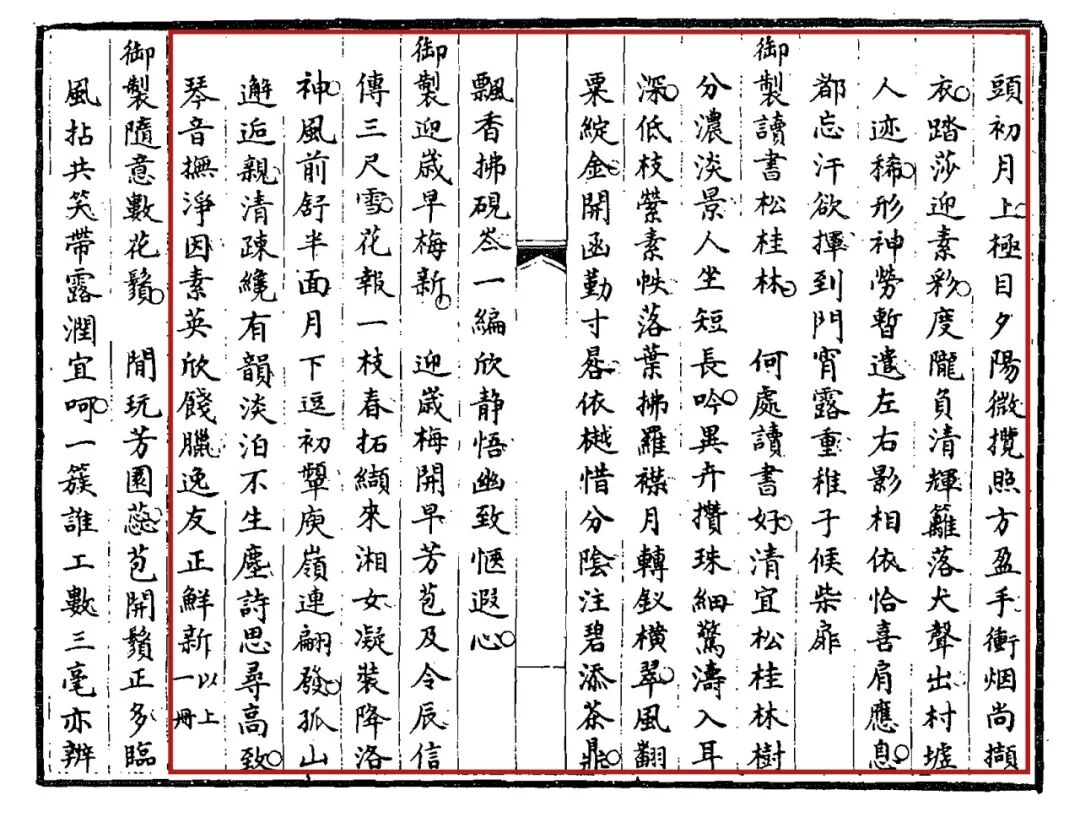 頭初月上極目夕陽微攬照方盈手衝烟尚擷
衣踏莎迎素彩度隴負清輝籬落犬聲出村墟
人迹稀形神勞暫遣左右影相依恰喜肩應息
都忘汗欲揮到門宵露重稚子候柴扉
御製讀書松桂林　何處讀書好清宜松桂林樹
分濃淡景人坐短長吟異卉攢珠細驚濤入耳
深低枝縈素帙落葉拂羅襟月轉釵橫翠風翻
粟綻金開函勤寸晷依樾惜分陰注碧添茶鼎
飄香拂硯岑一編欣静悟幽致愜遐心
御製迎歲早梅新　迎歲梅開早芳苞及令辰信
傳三尺雪花報一枝春拓纈來湘女凝裝降洛
神風前舒半面月下逗初顰庾嶺連翩發孤山
邂逅親清疎纔有韻淡泊不生塵詩思尋高致
琴音撫淨因素英欣餞臘逸友正鮮新以上一冊
御製隨意數花鬚　閒玩芳園蕊苞開鬚正多臨
風拈共笑帶露潤宜呵一簇誰工數三毫亦辨